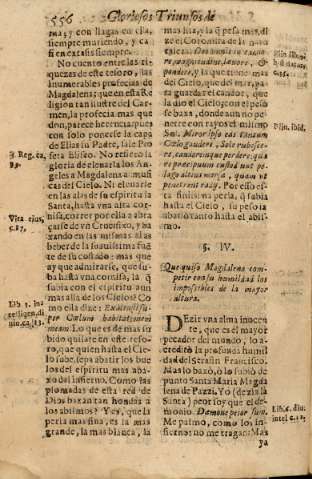 556 Gloriosos Triunfos de
mas; y con llagas en ella,
siempre muriendo, y ca
si en extasis siempre.
No cuento entre las ri
quezas de este tesoro, las
inumerables profecias de
Magdalena: quen en esta Re
ligion tan ilustre del Car-
men, la profecia mas que
don, parece herencia, pues
con solo ponerse la capa
de Elias su Padre, sale Pro
feta Eliseo. No refiero la
gloria de elevarla los An-
geles a Magdalena a musi-
cas del Cielo. Ni el verle
en las alas de su espiritu la
Santa, hasta vna alta cor-
nisa, correr por ella a abra
çarse de vn Crucifixo, y ba
xando en las mismas alas
beberle la suauissima fuẽ
te de su costado: mas que
ay que admirarse, que su-
ba hasta vna cornisa, q̃
subia con el espiritu aun
mas alla de los Cielos? Co
mo ella dize:
meam. Lo que es de mas su
bido quilate en este teso-
ro, es, que quien hasta el Cie
lo sube, depa abatir los bue
los del espiritu mas aba-
xo del infierno. Como las
plomadas de esta red de
Dios baxan tan hondas a
los abismos? Yes, que la
perla mas fina, es la mas
grande, la mas blanca, la
mas lisa, y la q̃ pesa mas, di
ze el Coronista de la natu
raleza:
pondere, y la que tiene mas
del Cielo, que del mar, pa
ra guardar el candor, que
la dio el Cielo; con el peso
se baxa, donde aun no pe-
netre con rayos el mismo
Sol. Miror
Cælo gaudere, Sole rubesce-
re, candoremque perdere: qua
re præcipuum custodiunt pe-
lagia altius mersa, quam vt
penetrent radij. Por esso es-
ta finissima perla, q̃ subia
hasta el Cielo, su peso la
abatió tanto hasta el abis-
mo.
§. IV.
Que quiso Magdalena com-
petir con su humildad los
impossibles de la mayor
altura.
Dezir vna alma inocẽ
te, que es el mayor
pecador del mundo, lo a-
creditò la profunda humil
dad del Serafin Francisco.
Mas lo baxò, ò lo subió de
punto Santa Maria Magda
lena de Pazzi. Yo (dezia la
Santa) peor soy que el de-
monio. Dæmone peior sum.
Me palmo, como los in-
fiernos no me tragan: Mas
ya
Vita eius,
c.17,
Plin. ibid.